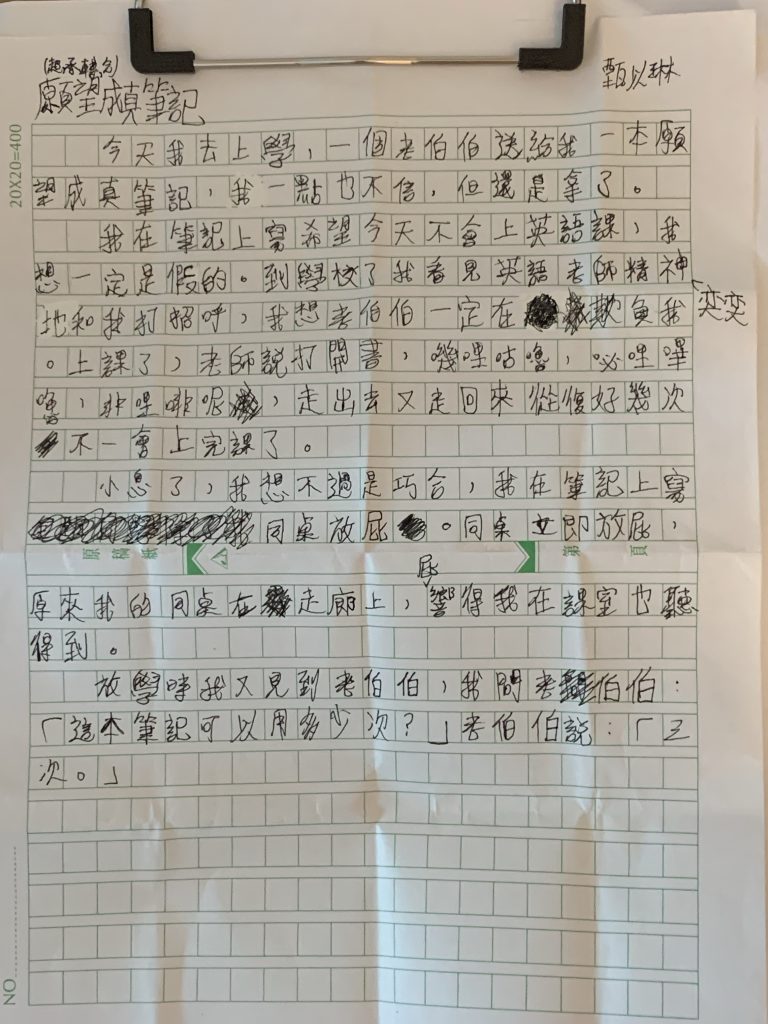 (起承轉合)
甄以琳
願望成真筆記
20X20=400
今天我去上學，一個老伯伯送給我一本願
望成真筆記，我一點也不信，但還是拿了。
我在筆記上寫希望今天不會上英語課，我
想一定是假的。到學校了我看見英語老師精神
奕奕
地和我打招呼，我想老伯伯一定在欺負我
。上課了，老師說打開書，嘰哩咕嚕，必哩嗶
嚕，啡哩啡呢，走出去又走回來從復好幾次
不一會上完課了。
小息了，我想不過是巧合，我在筆記上寫
同桌放屁。同桌立即放屁，
原稿紙
第 頁
屁
原來我的同桌在走廊上，響得我在課室也聽
得到。
放學時我又見到老伯伯，我問老伯伯：
「這本筆記可以用多少次？」老伯伯說：「三
次。」
NO